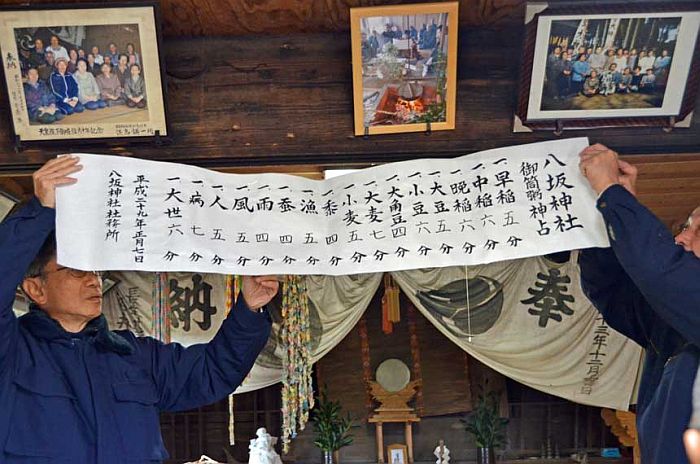 八坂神社
御筒粥神占
一早稲 五分
一中稲 六分
一晩稲 六分
一大豆 五分
一小豆 六分
一大角豆 四分
一大麦 七分
一小麦 五分
一黍 四分
一漁 五分
一蚕 四分
一雨 四分
一風 五分
一人 五分
一病 七分
一大世 六分
平成二十九年正月七日
八坂神社社務所
奉
納